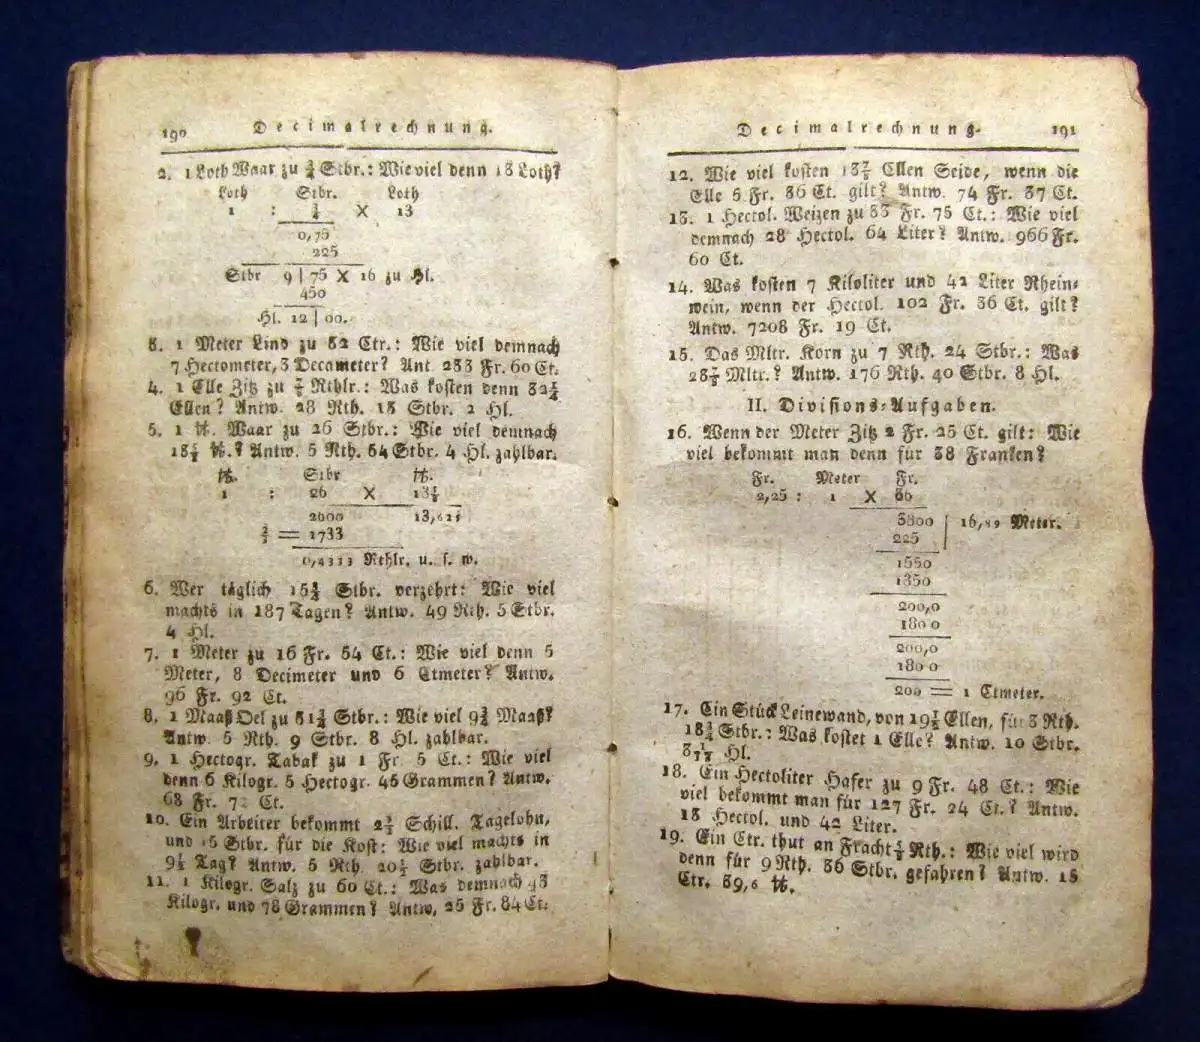 190 Decimalrechnung.
2. 1 Loth Waar zu ¾ Stbr.: Wie viel denn 13 Loth?
Loth Stbr. Loth
1 : ¾ X 13
0,75
225
Stbr 9 | 75 X 16 zu Hl.
450
Hl. 12 | 00.
3. 1 Meter Lind zu 32 Ctr.: Wie viel demnach
7 Hectometer, 3 Decameter? Ant. 233 Fr. 60 Ct.
4. 1 Elle Zitz zu Rthlr.: Was kosten denn 32¼
Ellen? Antw. 28 Rth. 13 Stbr. 2 Hl.
5. 1 ℔. Waar zu 26 Stbr.: Wie viel demnach
13½ ℔.? Antw. 5 Rth. 54 Stbr. 4 Hl. zahlbar.
℔. Stbr ℔.
1 : 26 X
2600 13,625
⅔ = 1733
0,4333 Rthlr. u. s. w.
6. Wer täglich 15¾ Stbr. verzehrt: Wie viel
machts in 187 Tagen? Antw. 49 Rth. 5 Stbr.
4 Hl.
7. 1 Meter zu 16 Fr. 54 Ct.: Wie viel denn 5
Meter, 8 Decimeter und 6 Ctmeter? Antw.
96 Fr. 92 Ct.
8. 1 Maaß Oel zu 31¾ Stbr.: Wie viel 9¾ Maaß?
Antw. 5 Rth. 9 Stbr. 8 Hl. zahlbar.
9. 1 Hectogr. Tabak zu 1 Fr. 5 Ct.: Wie viel
denn 6 Kilogr. 5 Hectogr. 45 Grammen? Antw.
68 Fr. 72 Ct.
10. Ein Arbeiter bekommt Schill. Tagelohn,
und 15 Stbr. für die Kost: Wie viel machts in
9½ Tag? Antw. 5 Rth. 20½ Stbr. zahlbar.
11. 1 Kilogr. Salz zu 60 Ct.: Was demnach 43
Kilogr. und 78 Grammen? Antw. 25 Fr. 84 Ct.
Decimalrechnung. 191
12. Wie viel kosten Ellen Seide, wenn die
Elle 5 Fr. 36 Ct. gilt? Antw. 74 Fr. 37 Ct.
13. 1 Hectol. Weizen zu 33 Fr. 75 Ct.: Wie viel
demnach 28 Hectol. 64 Liter? Antw. 966 Fr.
60 Ct.
14. Was kosten 7 Kiloliter und 42 Liter Rhein=
wein, wenn der Hectol. 102 Fr. 36 Ct. gilt?
Antw. 7208 Fr. 19 Ct.
15. Das Mltr. Korn zu 7 Rth. 24 Stbr.: Was
Mltr.? Antw. 176 Rth. 40 Stbr. 8 Hl.
II. Divisions=Aufgaben.
16. Wenn der Meter Zitz 2 Fr. 25 Ct. gilt: Wie
viel bekommt man denn für 38 Franken?
Fr. Meter Fr.
2,25 : 1 X 38
3800 | 16,89 Meter.
225
1550
1350
200,0
180 0
200,0
180 0
200 = 1 Ctmeter.
17. Ein Stück Leinewand, von Ellen, für 3 Rth.
18¾ Stbr.: Was kostet 1 Elle? Antw. 10 Stbr.
Hl.
18. Ein Hectoliter Hafer zu 9 Fr. 48 Ct.: Wie
viel bekommt man für 127 Fr. 24 Ct.? Antw.
13 Hectol. und 42 Liter.
19. Ein Ctr. thut an Fracht Rth.: Wie viel wird
denn für 9 Rth. 36 Stbr. gefahren? Antw. 15
Ctr. 39,6 ℔.